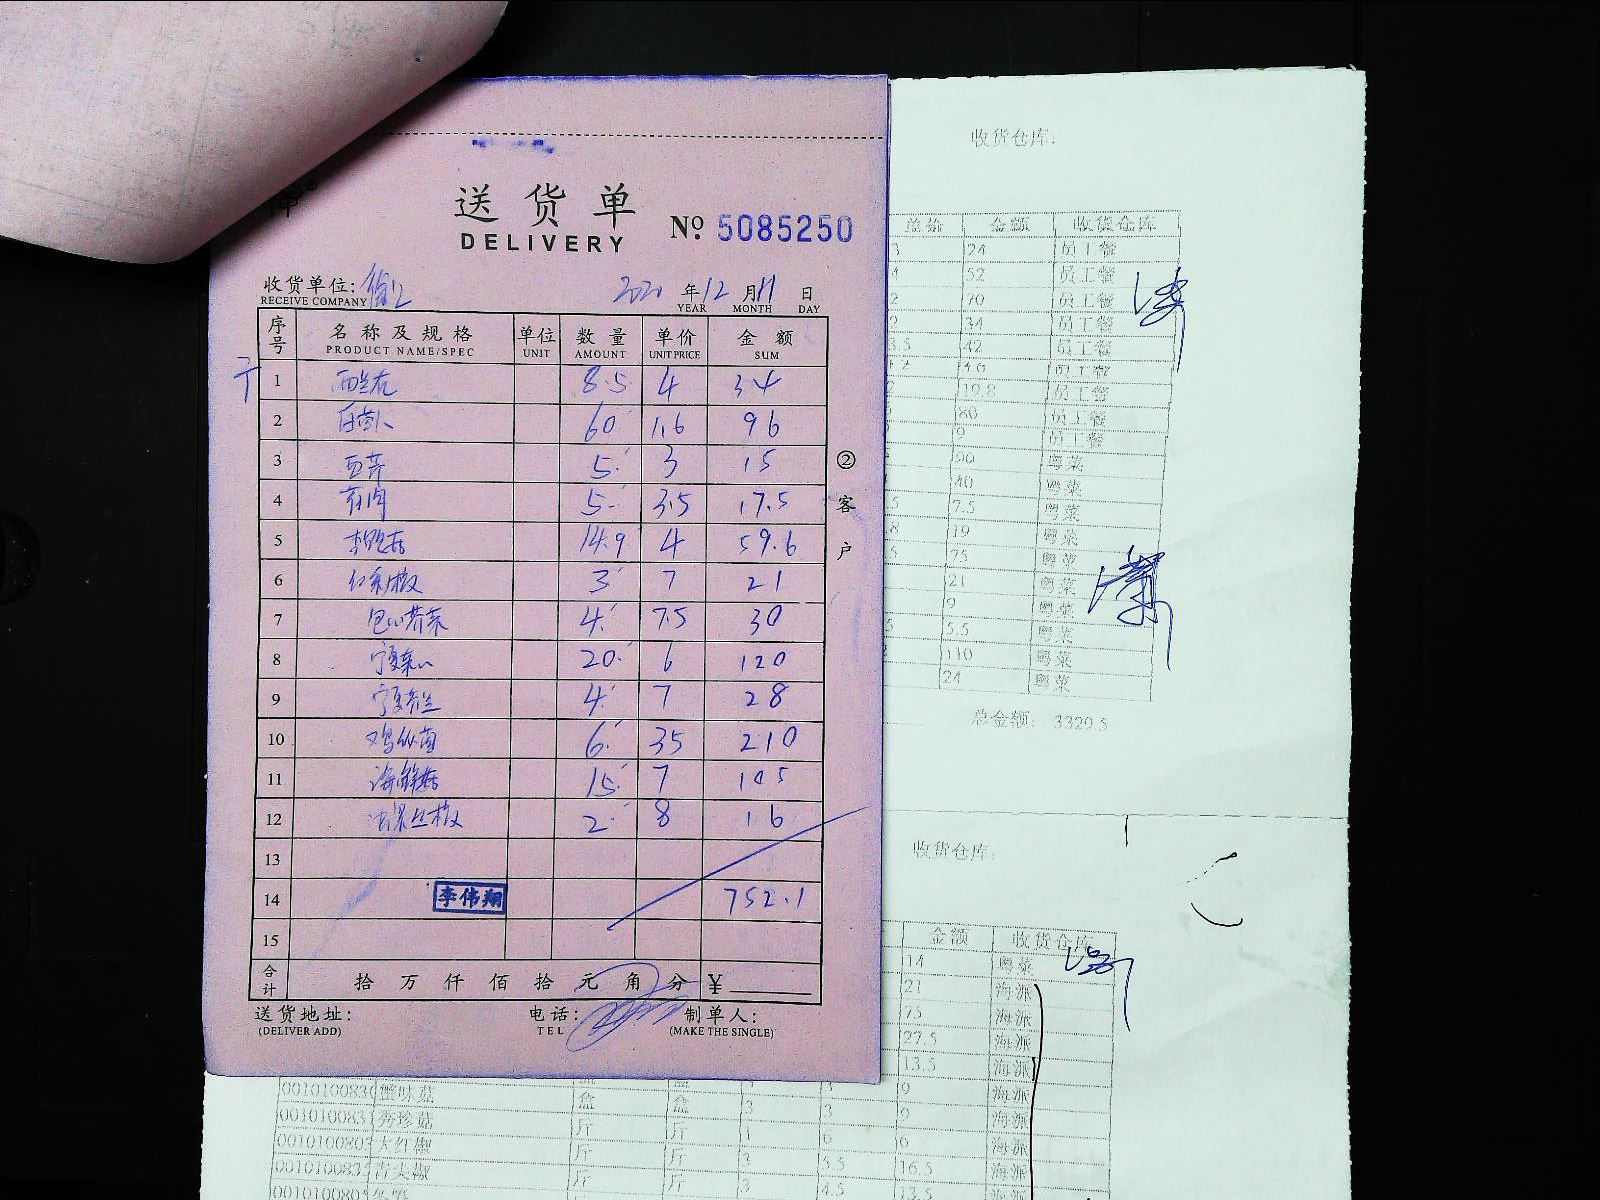 送货单
DELIVERY
№ 5085250
收货单位:
RECEIVE COMPANY
2020 年 12 月 11 日
YEAR MONTH DAY
序号 名称及规格 单位 数量 单价 金额
PRODUCT NAME/SPEC UNIT AMOUNT UNIT PRICE SUM
1 西兰花 8.5 4 34
2 60 1.6 96
3 西芹 5 3 15
4 5 3.5 17.5
5 14.9 4 59.6
6 3 7 21
7 包心芥菜 4 7.5 30
8 宁夏菜心 20 6 120
9 宁夏芥兰 4 7 28
10 鸡枞菌 6 35 210
11 海鲜菇 15 7 105
12 2 8 16
13
14 李伟翔 752.1
15
合计 拾 万 仟 佰 拾 元 角 分 ¥
送货地址:
(DELIVER ADD)
电话:
TEL
制单人:
(MAKE THE SINGLE)
② 客户
收货仓库:
总价 金额 收货仓库
24 员工餐
52 员工餐
70 员工餐
34 员工餐
42 员工餐
员工餐
119.8 员工餐
80 员工餐
9 员工餐
90 粤菜
40 粤菜
7.5 粤菜
19 粤菜
75 粤菜
21 粤菜
9 粤菜
5.5 粤菜
110 粤菜
24 粤菜
总金额: 3329.5
收货仓库:
金额 收货仓库
14 粤菜
21 海派
75 海派
27.5 海派
13.5 海派
蟹味菇 盒 盒 3 3 9 海派
秀珍菇 斤 斤 3 3 9 海派
大红椒 斤 斤 1 6 6 海派
青尖椒 斤 斤 3 5.5 16.5 海派
斤 斤 3 4.5 13.5 海派